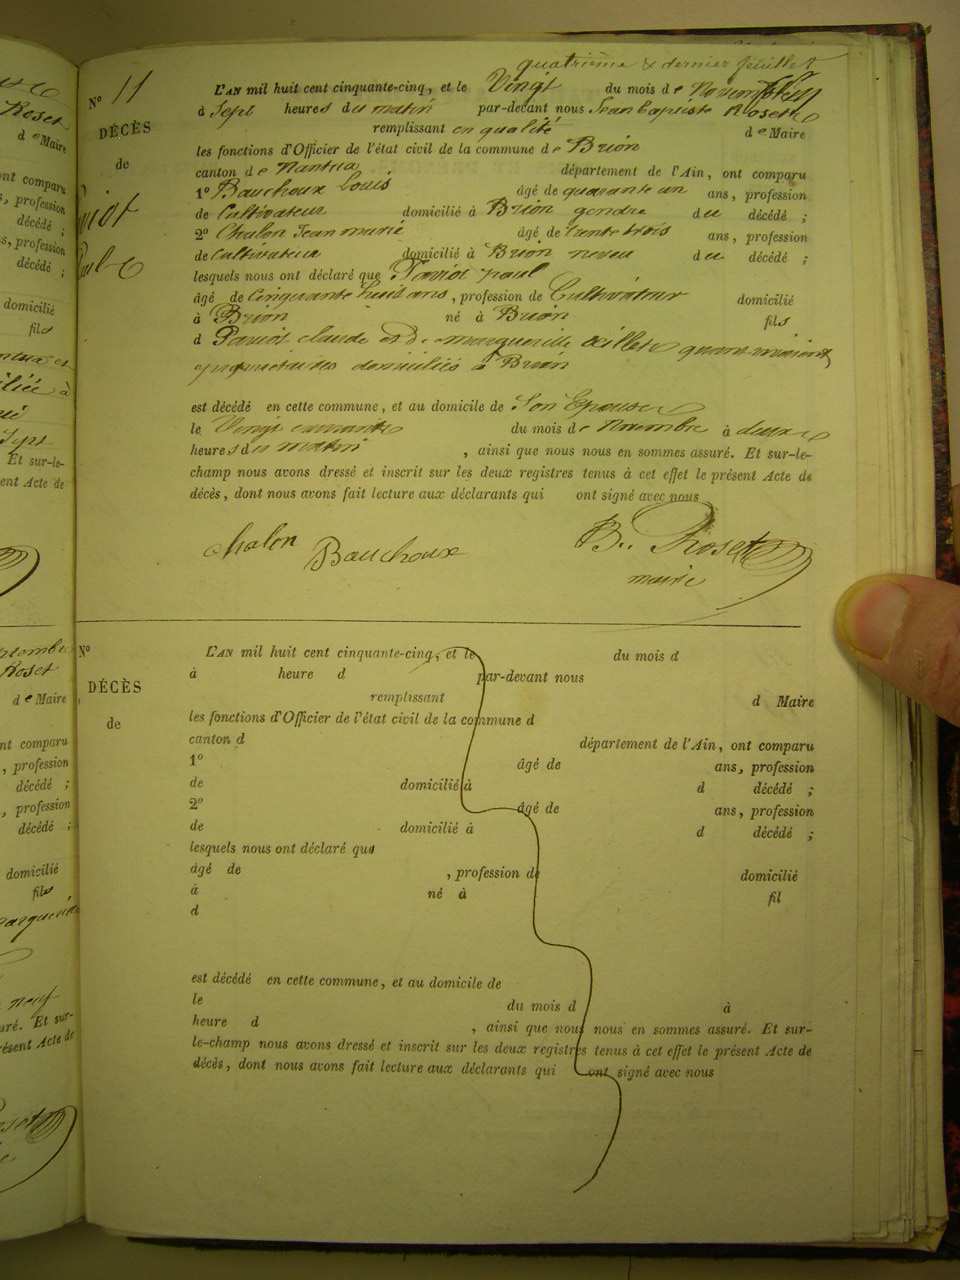 quatrième & dernier feuillet
N° 11
DÉCÈS
de
Paul
L'AN mil huit cent cinquante-cinq, et le Vingt du mois de Novembre
à Sept heures du matin par-devant nous Jean Baptiste Roset
remplissant en qualité de Maire
les fonctions d'Officier de l'état civil de la commune de Brion
canton de Nantua département de l'Ain, ont comparu
1° Bauchoux Louis âgé de quarante un ans, profession
de Cultivateur domicilié à Brion gendre du décédé ;
2° Chalon Jean marie âgé de trente trois ans, profession
de Cultivateur domicilié à Brion neveu du décédé ;
lesquels nous ont déclaré que paul
âgé de Cinquante huit ans, profession de Cultivateur domicilié
à Brion né à Brion fils
d claude et de marguerite
propriétaires domiciliés à Brion
est décédé en cette commune, et au domicile de Son Epouse
le Vingt courante du mois de Novembre à deux
heures du matin, ainsi que nous nous en sommes assuré. Et sur-le-
champ nous avons dressé et inscrit sur les deux registres tenus à cet effet le présent Acte de
décès, dont nous avons fait lecture aux déclarants qui ont signé avec nous
chalon Bauchoux B. Roset
maire
N°
DÉCÈS
de
L'AN mil huit cent cinquante-cinq, et le du mois d
à heure d par-devant nous
remplissant d Maire
les fonctions d'Officier de l'état civil de la commune d
canton d département de l'Ain, ont comparu
1° âgé de ans, profession
de domicilié à d décédé ;
2° âgé de ans, profession
de domicilié à d décédé ;
lesquels nous ont déclaré que
âgé de , profession de domicilié
à né à fil
d
est décédé en cette commune, et au domicile de
le du mois d à
heure d , ainsi que nous nous en sommes assuré. Et sur-
le-champ nous avons dressé et inscrit sur les deux registres tenus à cet effet le présent Acte de
décès, dont nous avons fait lecture aux déclarants qui ont signé avec nous